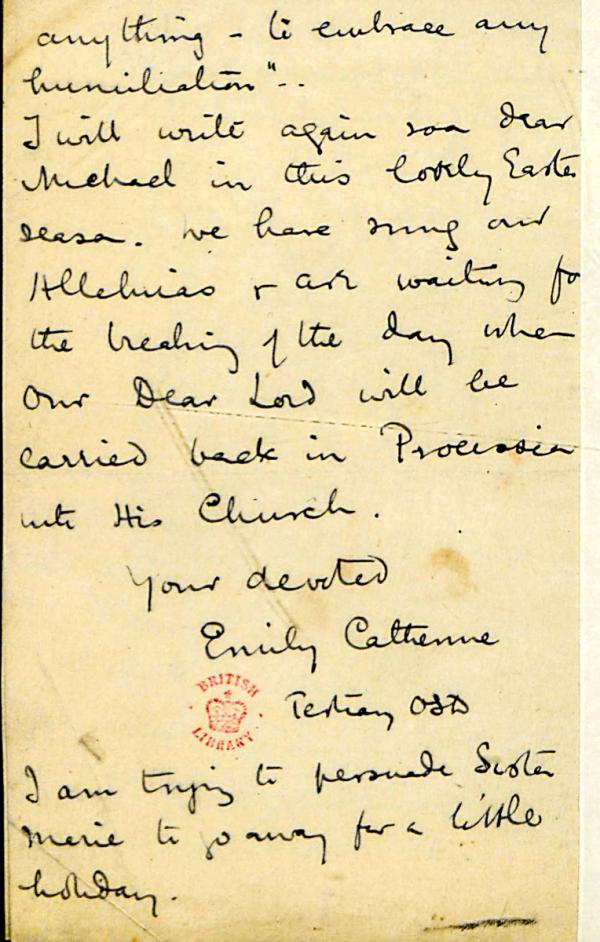 anything - to embrace any
humiliation"..
I will write again soon dear
Michael in this lovely Easter
season. We have sung our
Alleluias & are waiting for
the breaking of the day when
Our Dear Lord will be
carried back in Procession
into His Church.
Your devoted
Emily Catherine
Tertiary OSD
BRITISH
LIBRARY
I am trying to persuade Sister
Marie to go away for a little
holiday.